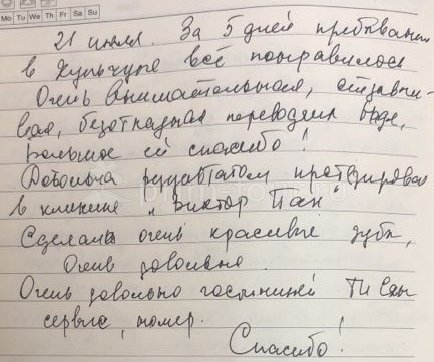 Mo Tu We Th Fr Sa Su
21 июля. За 5 дней пребывания
в Хуньчуне всё понравилось
Очень внимательная, отзывчи-
вая, безотказная переводчик
большое ей спасибо!
Довольна результатом протезирован
в клинике "Виктор Пан"
Сделали очень красивые зубы,
Очень довольна.
Очень довольна гостиницей
сервис, номер.
Спасибо!